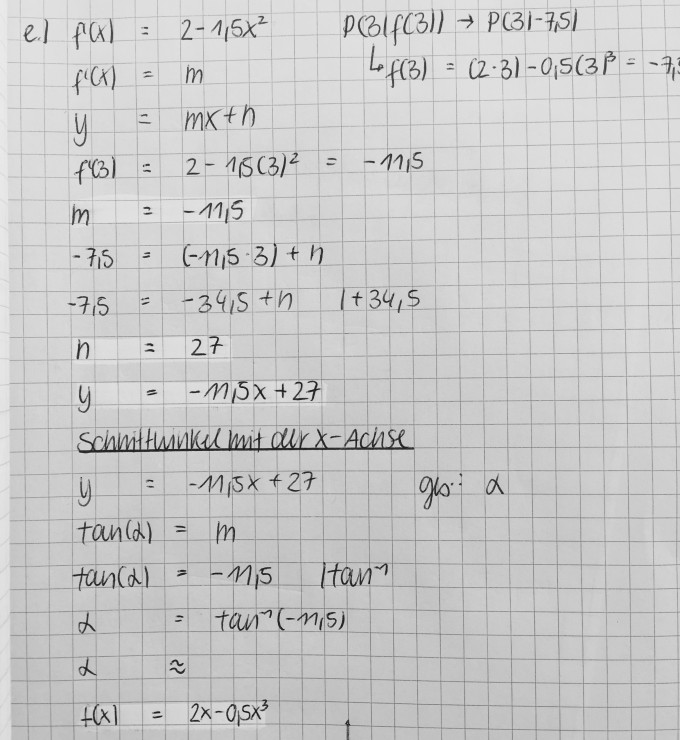 e.) f'(x) = 2-1,5x² P(3|f(3)) → P(3|-7,5)
f'(x) = m ↳ f(3) = (2·3)-0,5(3)³ = -7,5
y = mx+n
f'(3) = 2-1,5(3)² = -11,5
m = -11,5
-7,5 = (-11,5·3)+n
-7,5 = -34,5+n |+34,5
n = 27
y = -11,5x+27
Schnittwinkel mit der x-Achse
y = -11,5x+27 ges.: α
tan(α) = m
tan(α) = -11,5 |tan⁻¹
α = tan⁻¹(-11,5)
α ≈
f(x) = 2x-0,5x³